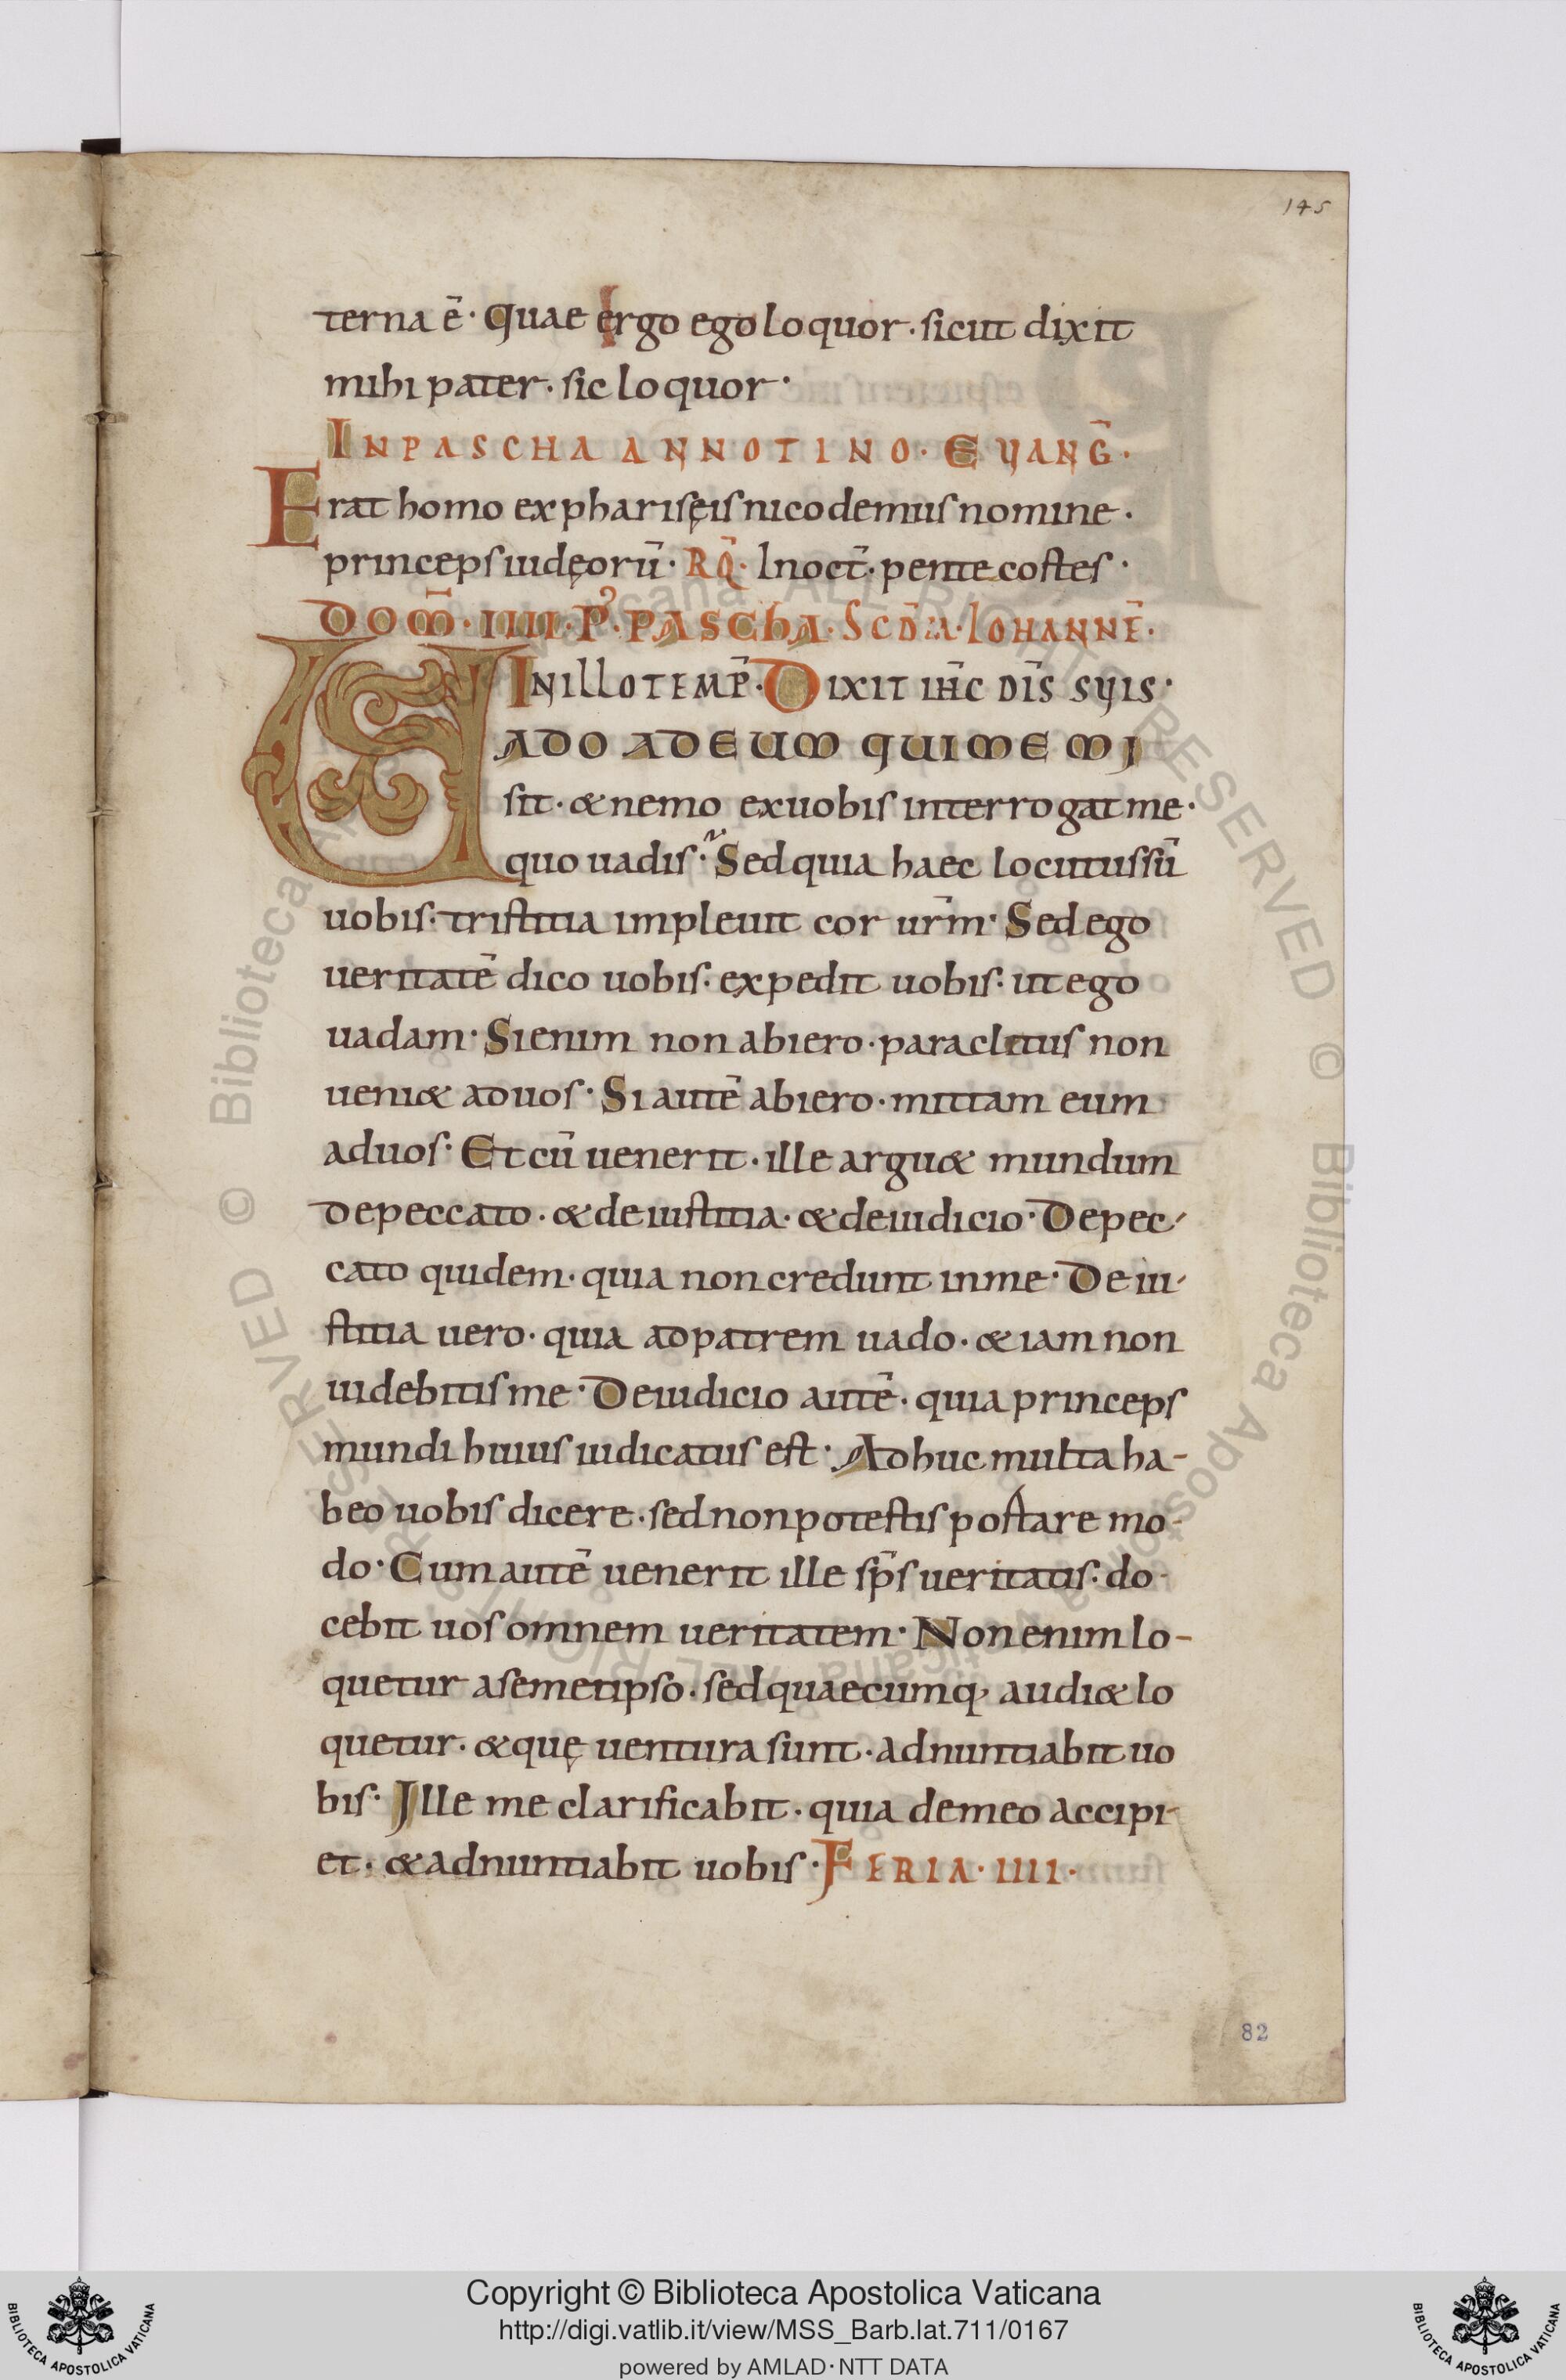 145
terna ē· Quae ergo ego loquor· sicut dixit
mihi pater· sic loquor·
IN PASCHA ANNOTINO· EUANḠ·
Erat homo ex pharisęis nicodemus nomine·
princeps iudęorū· RQ̄· In oct̄· pentecostes·
DOM̄· IIII· P᾿· PASCHA· SCD̄A· IOHANNĒ·
IN ILLO TEMP̄· DIXIT IH̄C DIS̄ SUIS·
UADO AD EUM QUI ME MI
sit· & nemo ex uobis interrogat me·
quo uadis· Sed quia haec locutus sū
uobis· tristitia impleuit cor ur̄m· Sed ego
ueritatē dico uobis· expedit uobis· ut ego
uadam· Si enim non abiero· paraclitus non
ueni& ad uos· Si autē abiero· mittam eum
ad uos· Et cū uenerit· ille argu& mundum
de peccato· & de iustitia· & de iudicio· De pec-
cato quidem· quia non credunt in me· De iu-
stitia uero· quia ad patrem uado· & iam non
uidebitis me· De iudicio autē· quia princeps
mundi huius iudicatus est· Adhuc multa ha-
beo uobis dicere· sed non potestis portare mo-
do· Cum autē uenerit ille sp̄s ueritatis· do-
cebit uos omnem ueritatem· Non enim lo-
quetur a semetipso· sed quaecumq, audi& lo
quetur· & quę uentura sunt· adnuntiabit uo
bis· Ille me clarificabit· quia de meo accipi-
et· & adnuntiabit uobis· FERIA· IIII·
82
Copyright © Biblioteca Apostolica Vaticana
http://digi.vatlib.it/view/MSS_Barb.lat.711/0167
powered by AMLAD·NTT DATA
BIBLIOTECA APOSTOLICA VATICANA
BIBLIOTECA APOSTOLICA VATICANA